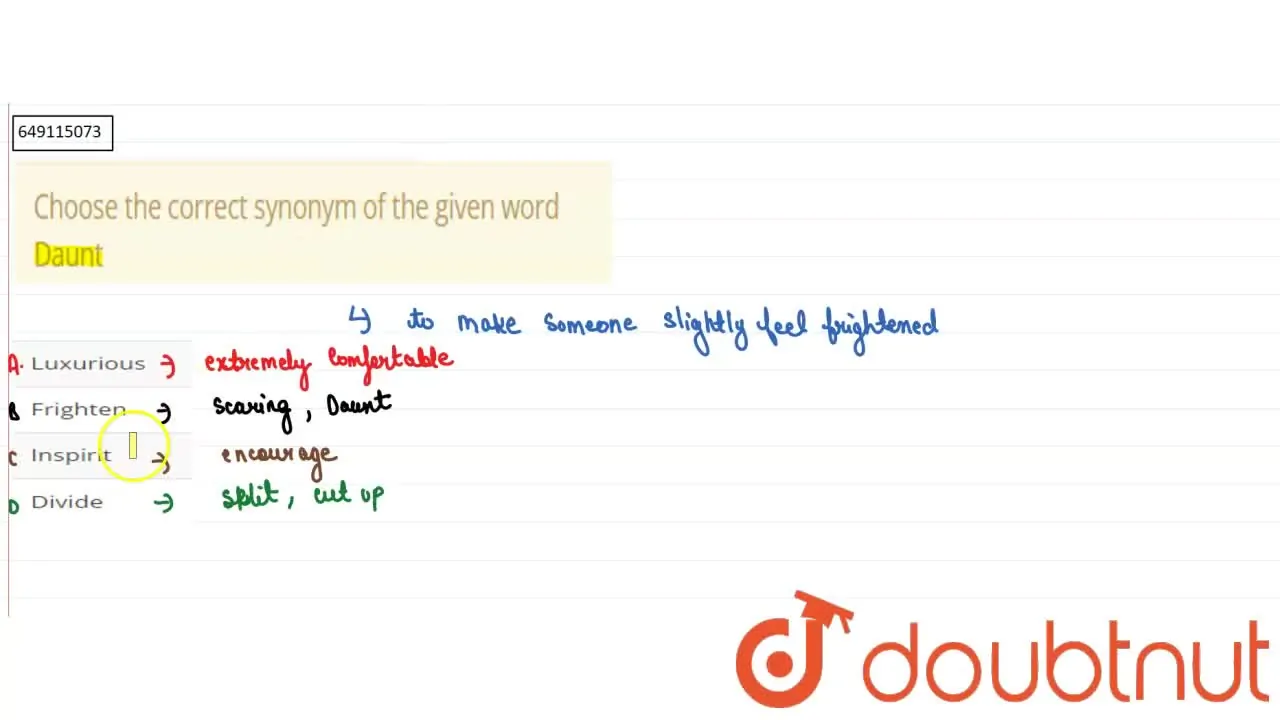 649115073
Choose the correct synonym of the given word
Daunt
↳ to make someone slightly feel frightened
A. Luxurious → extremely comfortable
B Frighten → scaring, Daunt
C Inspirit → encourage
D Divide → split, cut up
doubtnut